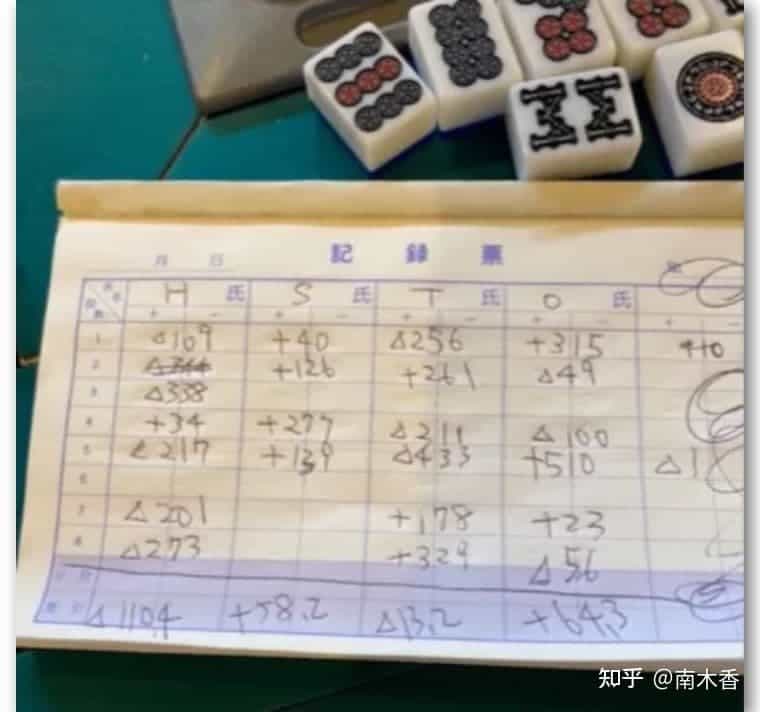 月 日 記録票
H 氏 S 氏 T 氏 O 氏
+ - + - + - + - + -
1 △109 +40 △256 +315 +10
2 △344 +126 +261 △49
3 △338
4 +34 +277 △211 △100
5 △217 +139 △433 +510 △1
6
7 △201 +178 +23
8 △273 +329 △56
△110.4 +58.2 △13.2 +64.3
知乎 @南木香